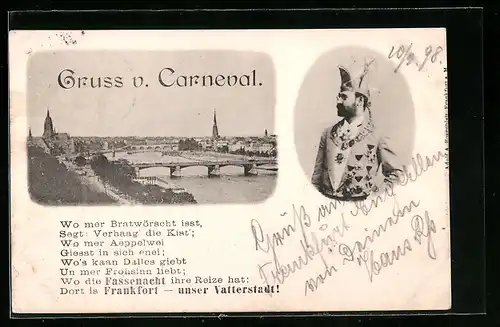 Gruss v. Carneval.
10/2 98.
Wo mer Bratwörscht isst,
Segt: Verhaag die Kist';
Wo mer Aeppelwei
Giesst in sich enei;
Wo's kaan Dalles giebt
Un mer Frohsinn liebt;
Wo die Fassenacht ihre Reize hat:
Dort is Frankfort — unser Vatterstadt!
Gruß an
Frankfurt
von Deinem
Hans